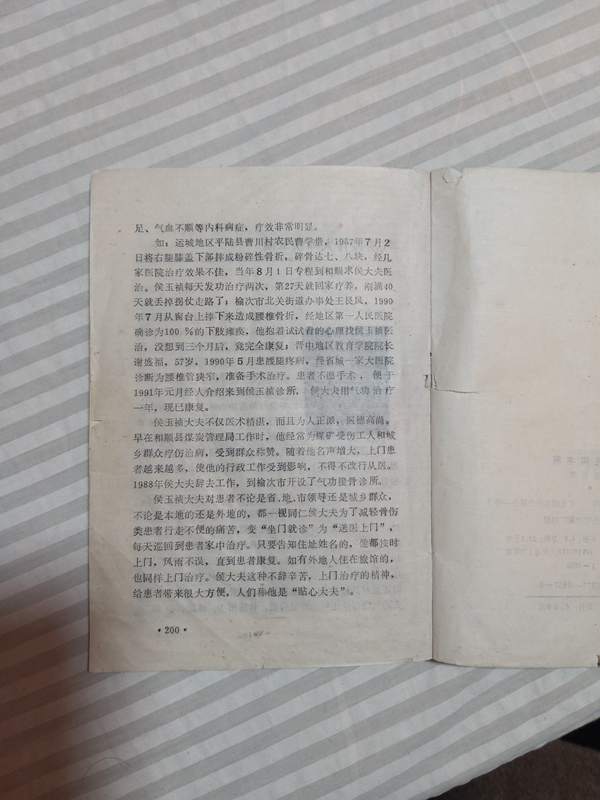 足、气血不顺等内科病症，疗效非常明显。
如：运城地区平陆县曹川村农民曹学贵，1987年7月2
日将右腿膝盖下部摔成粉碎性骨折，碎骨达七、八块，经几
家医院治疗效果不佳，当年8月1日专程到和顺求侯大夫医
治。侯玉祯每天发功治疗两次，第27天就回家疗养，刚满40
天就丢掉拐仗走路了；榆次市北关街道办事处王艮风，1990
年7月从窗台上摔下来造成腰椎骨折，经地区第一人民医院
确诊为100％的下肢瘫痪，他抱着试试看的心理找侯玉祯医
治，没想到三个月后，竟完全康复；晋中地区教育学院院长
谢盛福，57岁，1990年5月患腰腿疼病，经省城一家大医院
诊断为腰椎管狭窄，准备手术治疗。患者不愿手术，便于
1991年元月经人介绍来到侯玉祯诊所，侯大夫用气功治疗
一年，现已康复。
侯玉祯大夫不仅医术精湛，而且为人正派，医德高尚。
早在和顺县煤炭管理局工作时，他经常为煤矿受伤工人和城
乡群众疗伤治病，受到群众称赞。随着他名声增大，上门患
者越来越多，使他的行政工作受到影响，不得不改行从医。
1988年侯大夫辞去工作，到榆次市开设了气功接骨诊所。
侯玉祯大夫对患者不论是省、地、市领导还是城乡群众，
不论是本地的还是外地的，都一视同仁侯大夫为了减轻骨伤
类患者行走不便的痛苦，变“坐门就诊”为“送医上门”，
每天巡回到患者家中治疗。只要告知住址姓名的，他都按时
上门，风雨不误，直到患者康复。如有外地人住在旅馆的，
也同样上门治疗。侯大夫这种不辞辛苦，上门治疗的精神，
给患者带来很大方便，人们称他是“贴心大夫”。
·200·